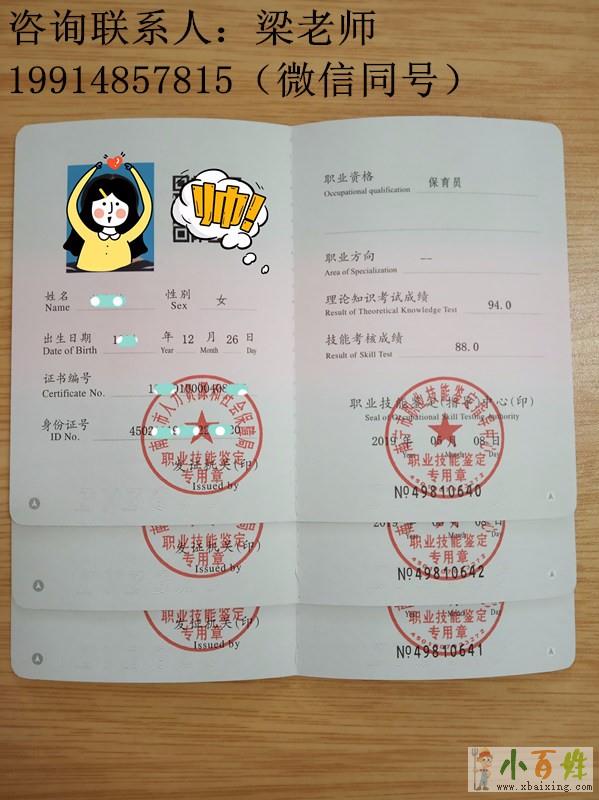 咨询联系人：梁老师
19914857815（微信同号）
帅!
姓名
Name
性别
Sex
女
出生日期
Date of Birth
年
Year
12
月
Month
26
日
Day
证书编号
Certificate No.
身份证号
ID No.
发证机关(印)
Issued by
职业技能鉴定
专用章
职业资格
Occupational qualification
保育员
职业方向
Area of Specialization
--
理论知识考试成绩
Result of Theoretical Knowledge Test
94.0
技能考核成绩
Result of Skill Test
88.0
职业技能鉴定(指导)中心(印)
Seal of Occupational Skill Testing Authority
2019 年 05 月 08 日
Year Month Day
职业技能鉴定
专用章
№49810640
发证机关(印)
Issued by
职业技能鉴定
专用章
Year Month Day
职业技能鉴定
专用章
№49810642
发证机关(印)
Issued by
职业技能鉴定
专用章
Year Month Day
职业技能鉴定
专用章
№49810641
小百姓
www.xbaixing.com